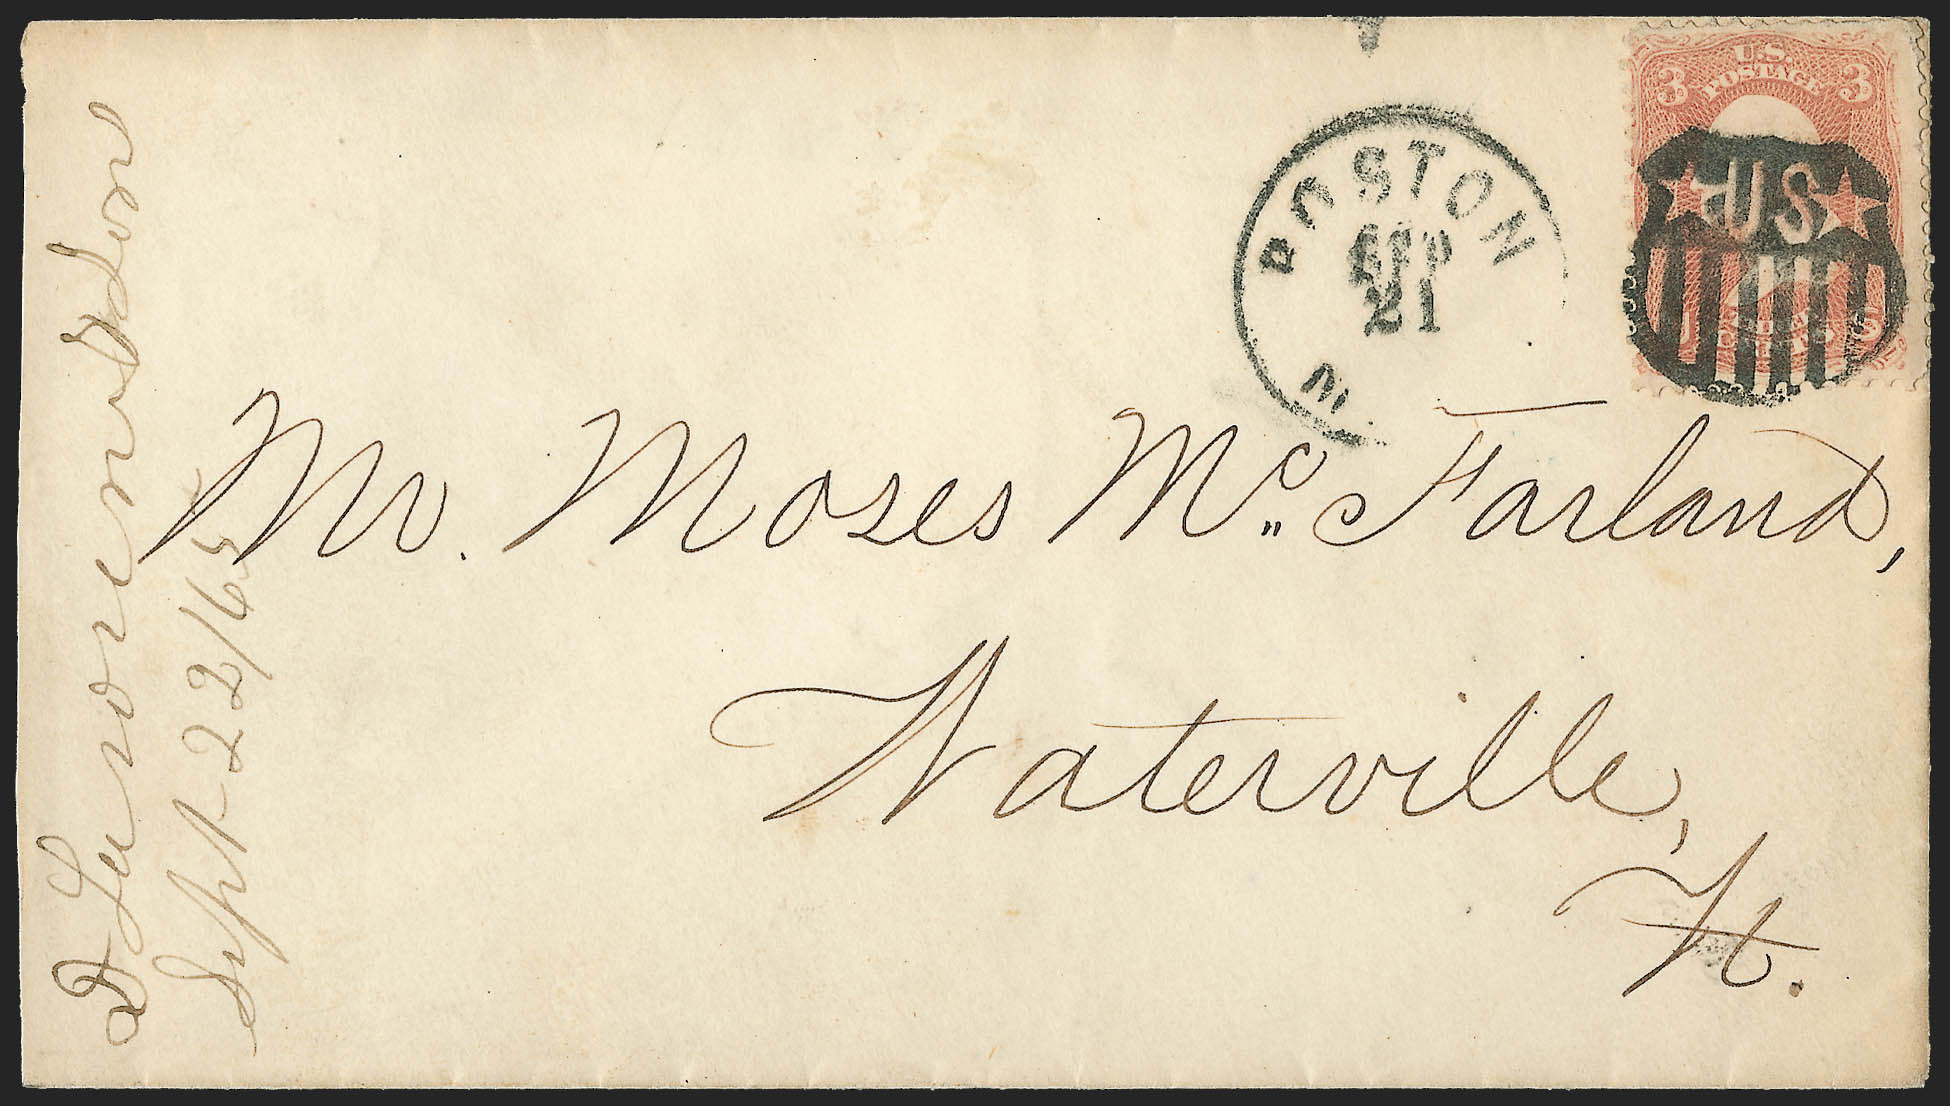 U.S.
POSTAGE
3 3
US
BOSTON
SEP
21
M
Mr. Moses Mc. Farland,
Waterville,
Vt.
Sept 22/65